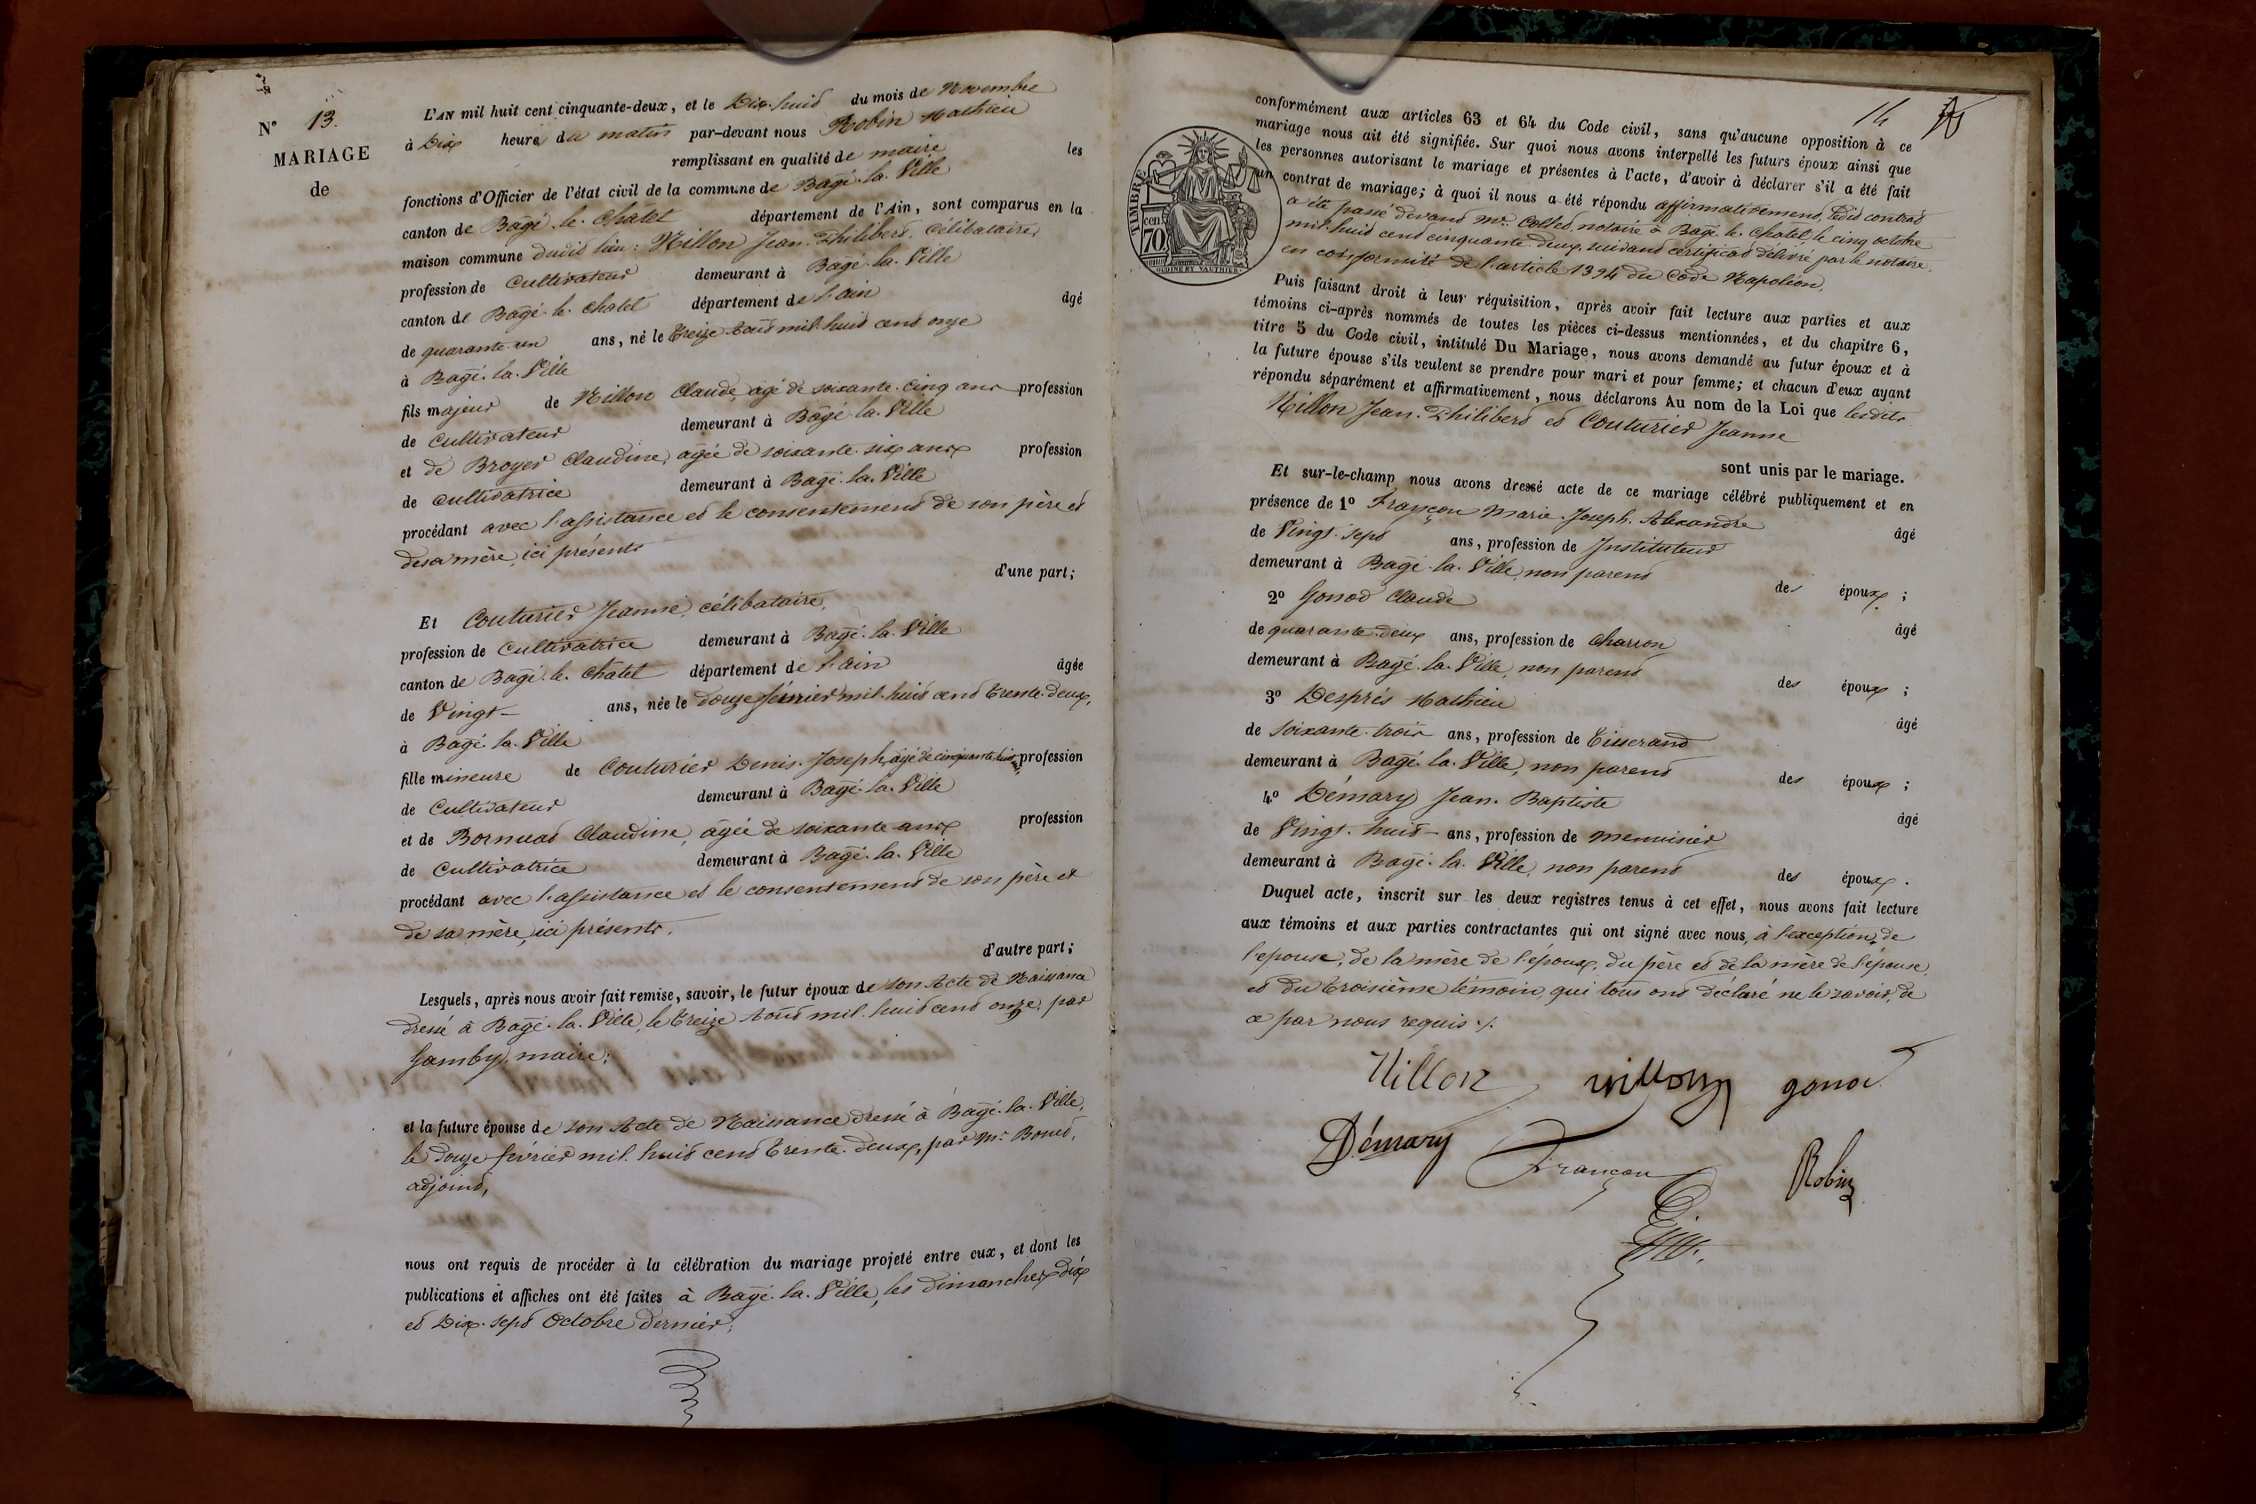 N° 13.
MARIAGE
de
L'AN mil huit cent cinquante-deux, et le Dix-huit du mois de Novembre
à Dix heure du matin par-devant nous Robin Mathieu
remplissant en qualité de maire les
fonctions d'Officier de l'état civil de la commune de Bagé-la-Ville
canton de Bagé-le-Châtel département de l'Ain, sont comparus en la
maison commune dudit lieu: Nillon Jean-Philibert, célibataire,
profession de Cultivateur demeurant à Bagé-la-Ville
canton de Bagé-le-Chatel département de l'ain âgé
de quarante-un ans, né le treize Août mil-huit cent onze
à Bagé-la-Ville
fils majeur de Nillon Claude, âgé de soixante-cinq ans profession
de Cultivateur demeurant à Bagé-la-Ville
et de Broyer Claudine, agée de soixante-six ans profession
de cultivatrice demeurant à Bagé-la-Ville
procédant avec l'assistance et le consentement de son père et
de sa mère, ici présents
d'une part;
Et Couturier Jeanne, célibataire,
profession de Cultivatrice demeurant à Bagé-la-Ville
canton de Bagé-le-Châtel département de l'ain âgée
de Vingt ans, née le douze février mil-huit cent trente-deux,
à Bagé-la-Ville
fille mineure de Couturier Denis-Joseph, âgé de cinquante-huit ans, profession
de Cultivateur demeurant à Bagé-la-Ville
et de Bornuat Claudine, agée de soixante ans profession
de Cultivatrice demeurant à Bagé-la-Ville
procédant avec l'assistance et le consentement de son père et
de sa mère, ici présents,
d'autre part;
Lesquels, après nous avoir fait remise, savoir, le futur époux de son Acte de Naissance
dressé à Bagé-la-Ville, le treize Août mil-huit cent onze, par
Gamby, maire;
et la future épouse de son Acte de Naissance dressé à Bagé-la-Ville,
le Douze février mil-huit cent trente-deux, par Mr. Bouet,
adjoint,
nous ont requis de procéder à la célébration du mariage projeté entre eux, et dont les
publications et affiches ont été faites à Bagé-la-Ville, les dimanches dix
et Dix-sept Octobre dernier;
14
TIMBRE
cen
70
OUDINÉ ET VAUTHIER
conformément aux articles 63 et 64 du Code civil, sans qu'aucune opposition à ce
mariage nous ait été signifiée. Sur quoi nous avons interpellé les futurs époux ainsi que
les personnes autorisant le mariage et présentes à l'acte, d'avoir à déclarer s'il a été fait
un contrat de mariage; à quoi il nous a été répondu affirmativement, ledit contrat
a été passé devant Me. Collet, notaire à Bagé-le-Chatel, le cinq octobre
mil-huit cent cinquante-deux, suivant certificat délivré par le notaire
en conformité de l'article 1394 du Code Napoléon.
Puis faisant droit à leur réquisition, après avoir fait lecture aux parties et aux
témoins ci-après nommés de toutes les pièces ci-dessus mentionnées, et du chapitre 6,
titre 5 du Code civil, intitulé Du Mariage, nous avons demandé au futur époux et à
la future épouse s'ils veulent se prendre pour mari et pour femme; et chacun d'eux ayant
répondu séparément et affirmativement, nous déclarons Au nom de la Loi que lesdits
Nillon Jean-Philibert et Couturier Jeanne
sont unis par le mariage.
Et sur-le-champ nous avons dressé acte de ce mariage célébré publiquement et en
présence de 1° Françon Marie-Joseph-Alexandre âgé
de Vingt-sept ans, profession de Instituteur
demeurant à Bagé-la-Ville, non parent des époux;
2° Gonod Claude âgé
de quarante-deux ans, profession de charron
demeurant à Bagé-la-Ville, non parent des époux;
3° Desprès Mathieu âgé
de soixante-trois ans, profession de Tisserand
demeurant à Bagé-la-Ville, non parent des époux;
4° Démary Jean-Baptiste âgé
de Vingt-huit ans, profession de menuisier
demeurant à Bagé-la-Ville, non parent des époux.
Duquel acte, inscrit sur les deux registres tenus à cet effet, nous avons fait lecture
aux témoins et aux parties contractantes qui ont signé avec nous, à l'exception de
l'épouse, de la mère de l'époux, du père et de la mère de l'épouse,
et du troisième témoin, qui tous ont déclaré ne le savoir, de
ce par nous requis./.
Nillon Nillon gonod
Démary Françon Robin